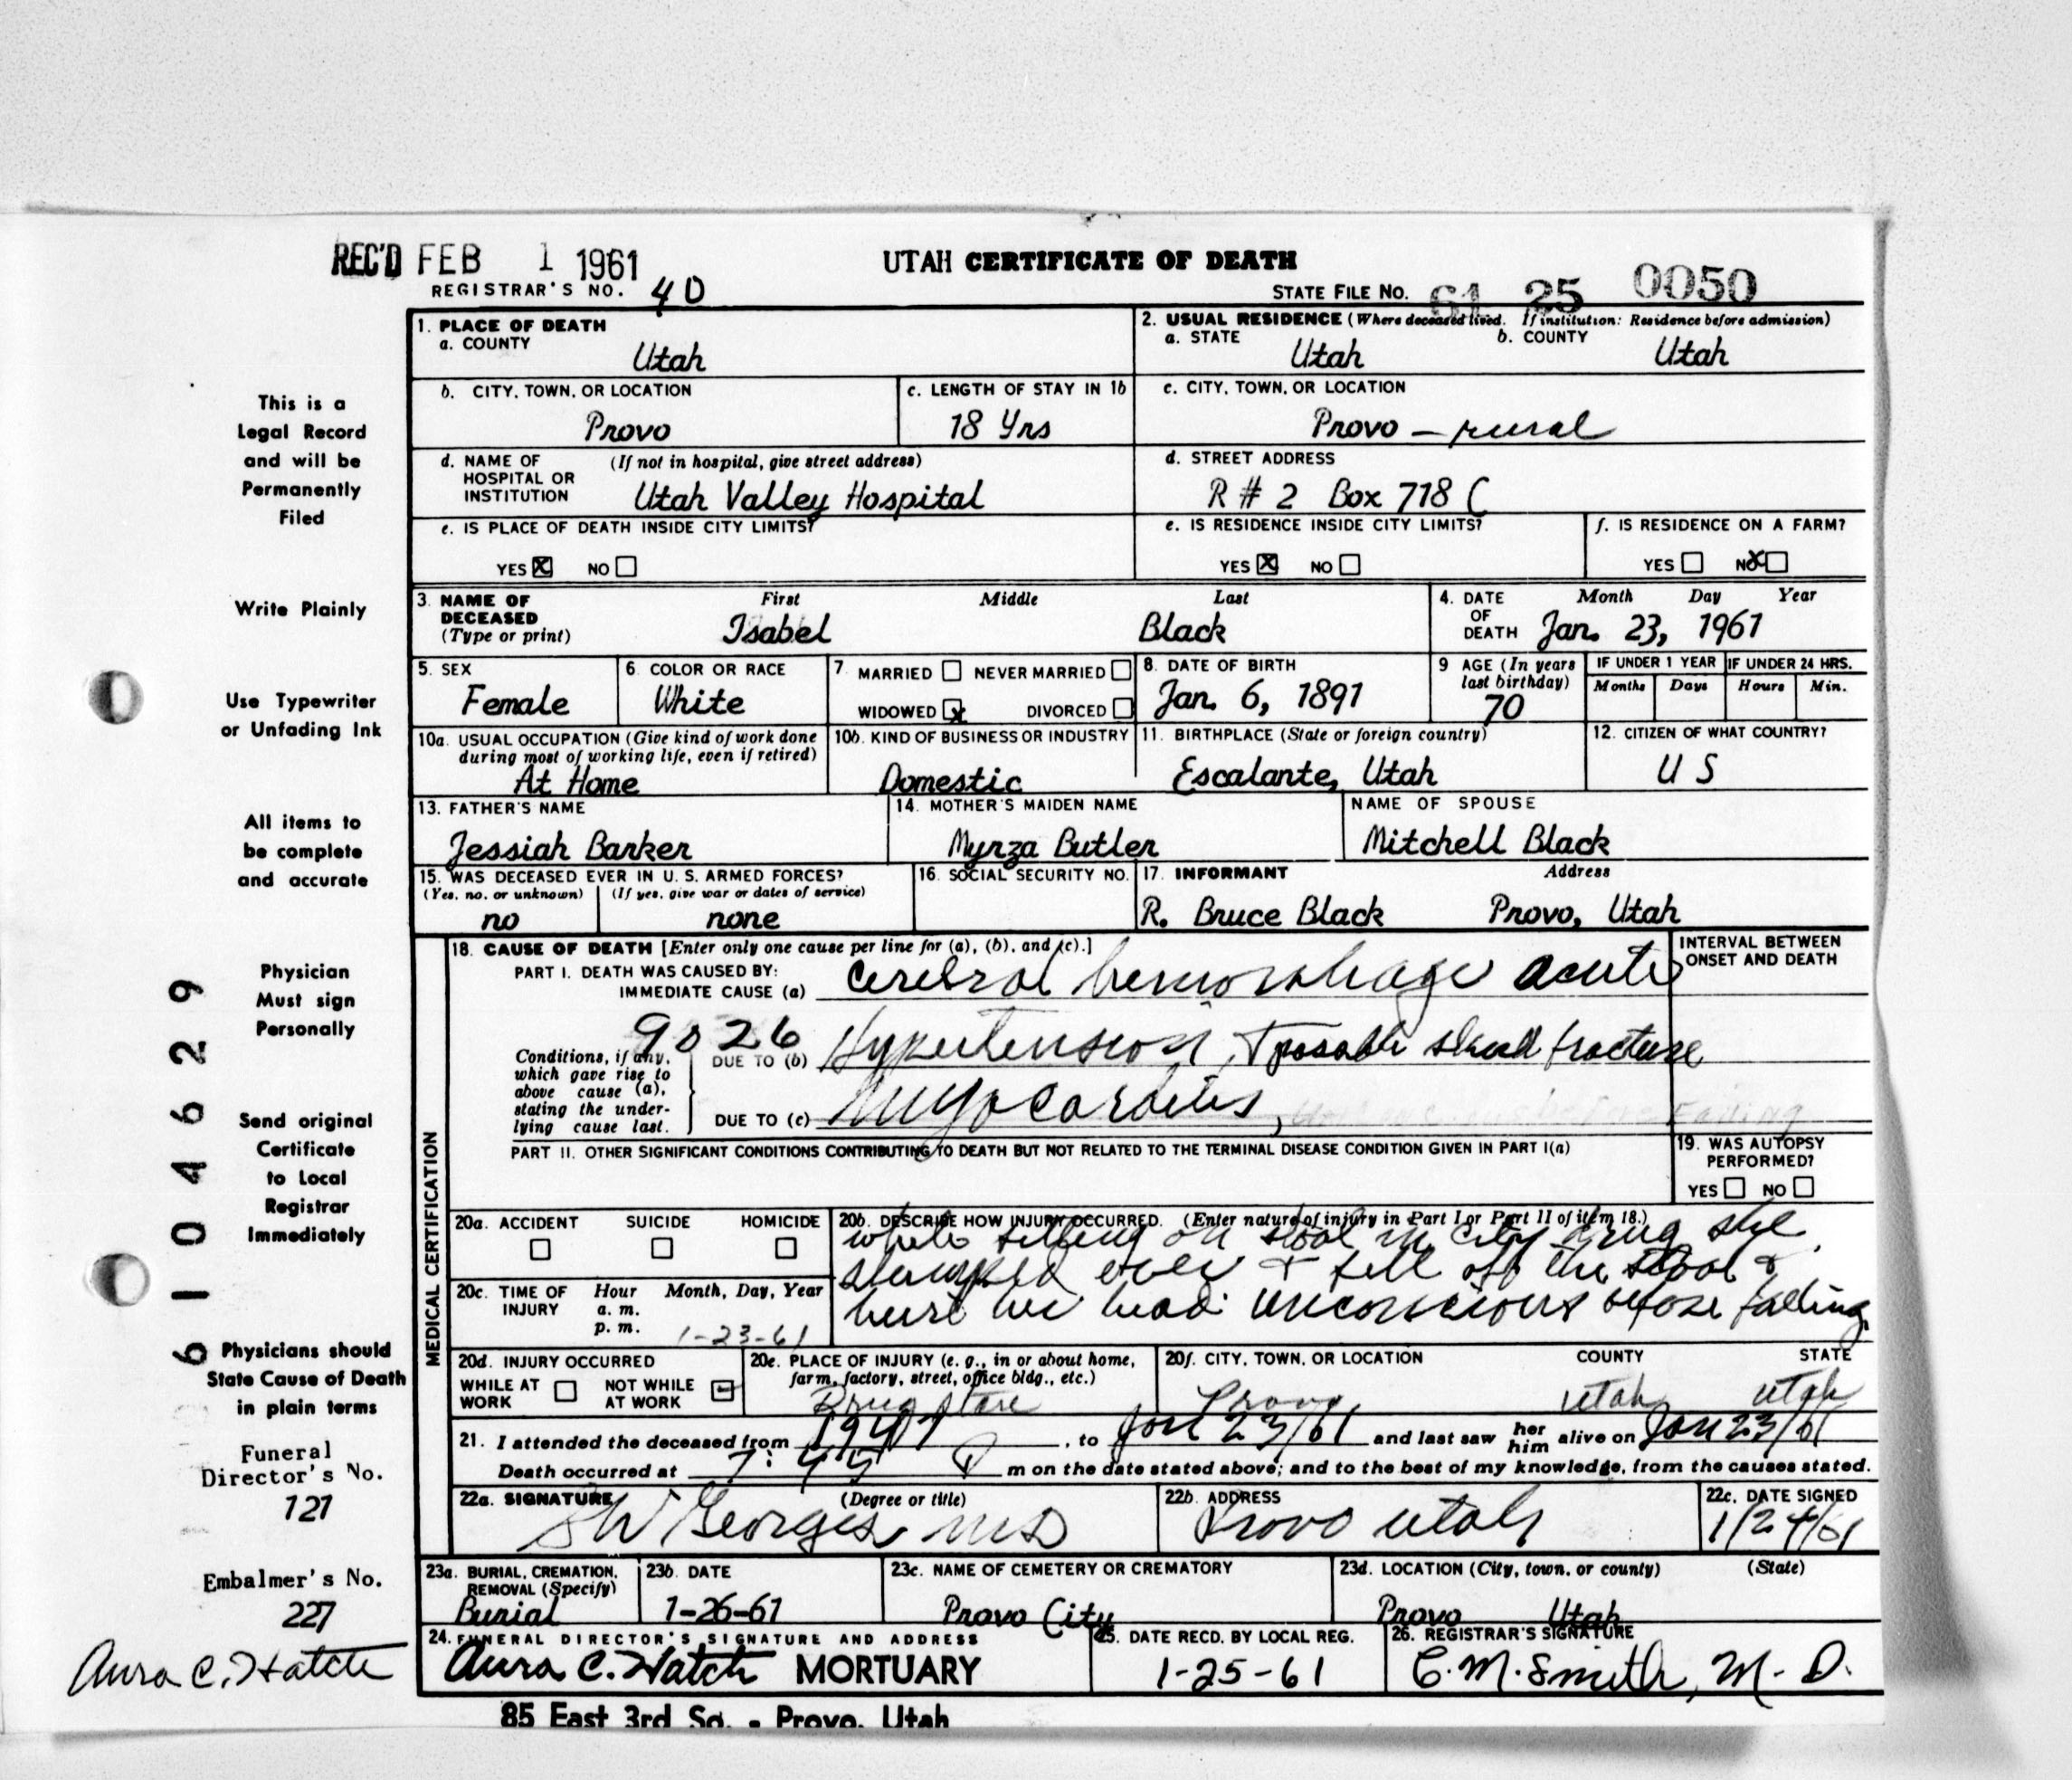 REC'D FEB 1 1961
UTAH CERTIFICATE OF DEATH
REGISTRAR'S NO. 40
STATE FILE NO. 61 25 0050
1. PLACE OF DEATH
a. COUNTY
Utah
2. USUAL RESIDENCE (Where deceased lived. If institution: Residence before admission)
a. STATE
Utah
b. COUNTY
Utah
b. CITY, TOWN, OR LOCATION
Provo
c. LENGTH OF STAY IN 1b
18 Yrs
c. CITY, TOWN, OR LOCATION
Provo - rural
d. NAME OF (If not in hospital, give street address)
HOSPITAL OR
INSTITUTION Utah Valley Hospital
d. STREET ADDRESS
R # 2 Box 718 C
e. IS PLACE OF DEATH INSIDE CITY LIMITS?
YES X NO
e. IS RESIDENCE INSIDE CITY LIMITS?
YES X NO
f. IS RESIDENCE ON A FARM?
YES NO X
3. NAME OF DECEASED (Type or print)
First Middle Last
Isabel Black
4. DATE OF DEATH
Month Day Year
Jan. 23, 1961
5. SEX
Female
6. COLOR OR RACE
White
7. MARRIED NEVER MARRIED
WIDOWED X DIVORCED
8. DATE OF BIRTH
Jan. 6, 1891
9 AGE (In years last birthday)
70
IF UNDER 1 YEAR IF UNDER 24 HRS.
Months Days Hours Min.
10a. USUAL OCCUPATION (Give kind of work done
during most of working life, even if retired)
At Home
10b. KIND OF BUSINESS OR INDUSTRY
Domestic
11. BIRTHPLACE (State or foreign country)
Escalante, Utah
12. CITIZEN OF WHAT COUNTRY?
U S
13. FATHER'S NAME
Jessiah Barker
14. MOTHER'S MAIDEN NAME
Mynza Butler
NAME OF SPOUSE
Mitchell Black
15. WAS DECEASED EVER IN U. S. ARMED FORCES?
(Yes, no, or unknown) (If yes, give war or dates of service)
no none
16. SOCIAL SECURITY NO.
17. INFORMANT Address
R. Bruce Black Provo, Utah
MEDICAL CERTIFICATION
18. CAUSE OF DEATH [Enter only one cause per line for (a), (b), and (c).]
INTERVAL BETWEEN
ONSET AND DEATH
PART I. DEATH WAS CAUSED BY:
IMMEDIATE CAUSE (a) Cerebral hemorrhage acute
9026
Conditions, if any,
which gave rise to
above cause (a),
stating the under-
lying cause last.
DUE TO (b) Hypertension, + possible skull fracture
DUE TO (c) Myocarditis,
PART II. OTHER SIGNIFICANT CONDITIONS CONTRIBUTING TO DEATH BUT NOT RELATED TO THE TERMINAL DISEASE CONDITION GIVEN IN PART I(a)
19. WAS AUTOPSY
PERFORMED?
YES NO
20a. ACCIDENT SUICIDE HOMICIDE
20b. DESCRIBE HOW INJURY OCCURRED. (Enter nature of injury in Part I or Part II of item 18.)
while sitting on stool in City drug she
slumped over & fell off the stool &
hurt her head. unconscious before falling
20c. TIME OF INJURY
Hour Month, Day, Year
a. m.
p. m. 1-23-61
20d. INJURY OCCURRED
WHILE AT WORK NOT WHILE AT WORK
20e. PLACE OF INJURY (e. g., in or about home,
farm, factory, street, office bldg., etc.)
Drug store
20f. CITY, TOWN, OR LOCATION COUNTY STATE
Provo Utah Utah
21. I attended the deceased from 1947, to Jan 23/61 and last saw her him alive on Jan 23/61
Death occurred at 7:45 P m on the date stated above; and to the best of my knowledge, from the causes stated.
22a. SIGNATURE (Degree or title)
SW Georges MD
22b. ADDRESS
Provo Utah
22c. DATE SIGNED
1/24/61
23a. BURIAL, CREMATION,
REMOVAL (Specify)
Burial
23b. DATE
1-26-61
23c. NAME OF CEMETERY OR CREMATORY
Provo City
23d. LOCATION (City, town, or county) (State)
Provo Utah
24. FUNERAL DIRECTOR'S SIGNATURE AND ADDRESS
Aura C. Hatch MORTUARY
85 East 3rd So. - Provo, Utah
25. DATE RECD. BY LOCAL REG.
1-25-61
26. REGISTRAR'S SIGNATURE
C. M. Smith, M. D.
This is a
Legal Record
and will be
Permanently
Filed
Write Plainly
Use Typewriter
or Unfading Ink
All items to
be complete
and accurate
Physician
Must sign
Personally
Send original
Certificate
to Local
Registrar
Immediately
Physicians should
State Cause of Death
in plain terms
Funeral
Director's No.
121
Embalmer's No.
227
Aura C. Hatch
6 1 0 4 6 2 9